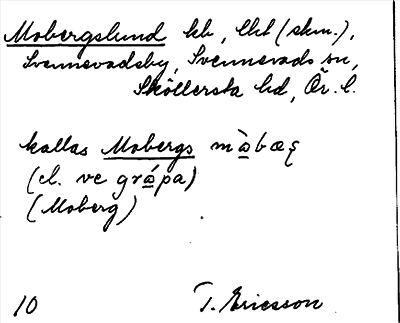 Mobergslund kb, lht (skm.),
Svennevadsby, Svennevads sn,
Sköllersta hd, Ör. l.
kallas Mobergs
(el. ve grápa)
(Moberg)
10 T. Ericsson